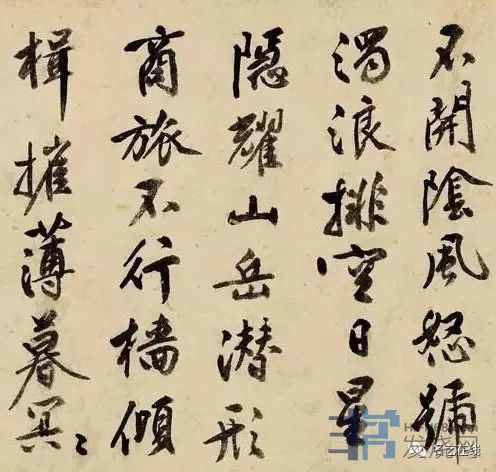 不開陰風怒號
濁浪排空日星
隱耀山岳潛形
商旅不行檣傾
楫摧薄暮冥〻
名艺在线